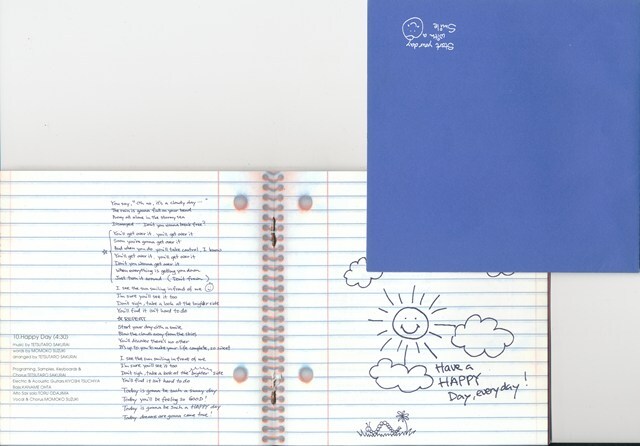 Start your day
with a
Smile
You say, "Oh no, it's a cloudy day ---"
The rain is gonna fall on your head
Away all alone in the stormy sea
Disarrayed -- Don't you wanna break free?
You'll get over it. you'll get over it
Soon you're gonna get over it
And when you do you'll take control, I know
You'll get over it. you'll get over it
Don't you wanna get over it
When everything is getting you down
Just turn it around (Don't frown)
I see the sun smiling in front of me
I'm sure you'll see it too
Don't sigh, take a look at the brighter side
You'll find it isn't hard to do
※ REPEAT
Start your day with a smile
Blow the clouds away from the skies
You'll discover there's no other
to make your life complete, so smile
I see the sun smiling in front of me
I'm sure you'll see it too
Don't sigh, take a look at the brighter side
You'll find it isn't hard to do
Today is gonna be such a sunny day
Today you'll be feeling so GOOD!
Today is gonna be such a HAPPY day
Today dreams are gonna come true!
10.Happy Day (4:30)
music by TETSUTARO SAKURAI
words by MOMOKO SUZUKI
arranged by TETSUTARO SAKURAI
Programing, Samples, Keyboards &
Chorus:TETSUTARO SAKURAI
Electric & Acoustic Guitars:KIYOSHI TSUCHIYA
Bass:
Alto Sax solo:TORU
Vocal & Chorus:MOMOKO SUZUKI
Have a
HAPPY
Day, everyday!